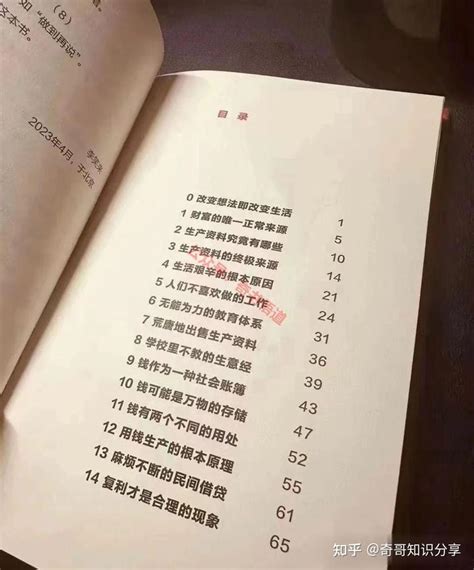 （8）
如“做到再说”。
这本书。
李笑来
2023年4月，于北京
目 录
0 改变想法即改变生活 1
1 财富的唯一正常来源 5
2 生产资料究竟有哪些 10
3 生产资料的终极来源 14
4 生活艰辛的根本原因 21
5 人们不喜欢做的工作 24
6 无能为力的教育体系 31
7 荒唐地出售生产资料 36
8 学校里不教的生意经 39
9 钱作为一种社会账簿 43
10 钱可能是万物的存储 47
11 钱有两个不同的用处 52
12 用钱生产的根本原理 55
13 麻烦不断的民间借贷 61
14 复利才是合理的现象 65
知乎 @奇哥知识分享